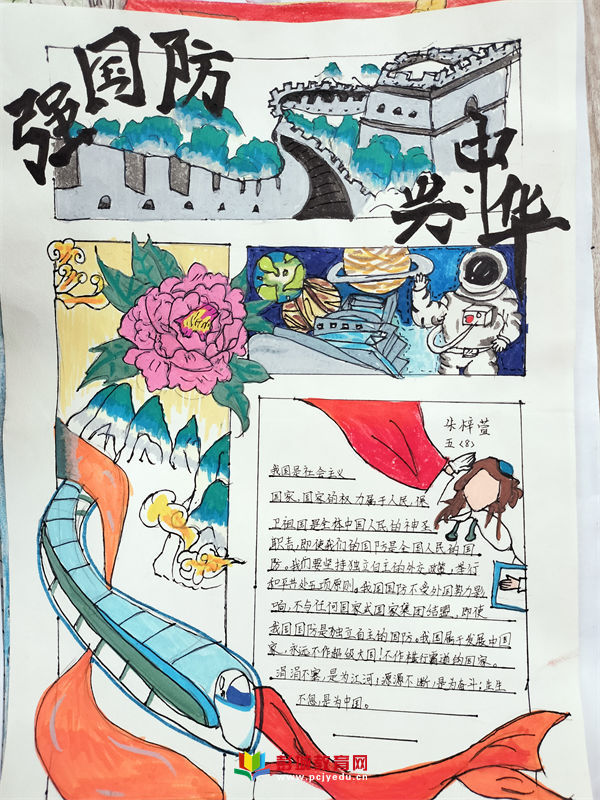 强国防
兴中华
朱梓萱
五(8)
我国是社会主义
国家,国家的权力属于人民,保
卫祖国是全体中国人民的神圣
职责,即使我们的国防是全国人民的国
防。我们要坚持独立自主的外交政策,奉行
和平共处五项原则。我国国防不受外国势力影
响,不与任何国家或国家集团结盟,即使
我国国防是独立自主的国防。我国属于发展中国
家,永远不作超级大国!不作横行霸道的国家。
涓涓不塞,是为江河;源源不断,是为奋斗;生生
不息,是为中国。
教育网
www.pcjyedu.cn